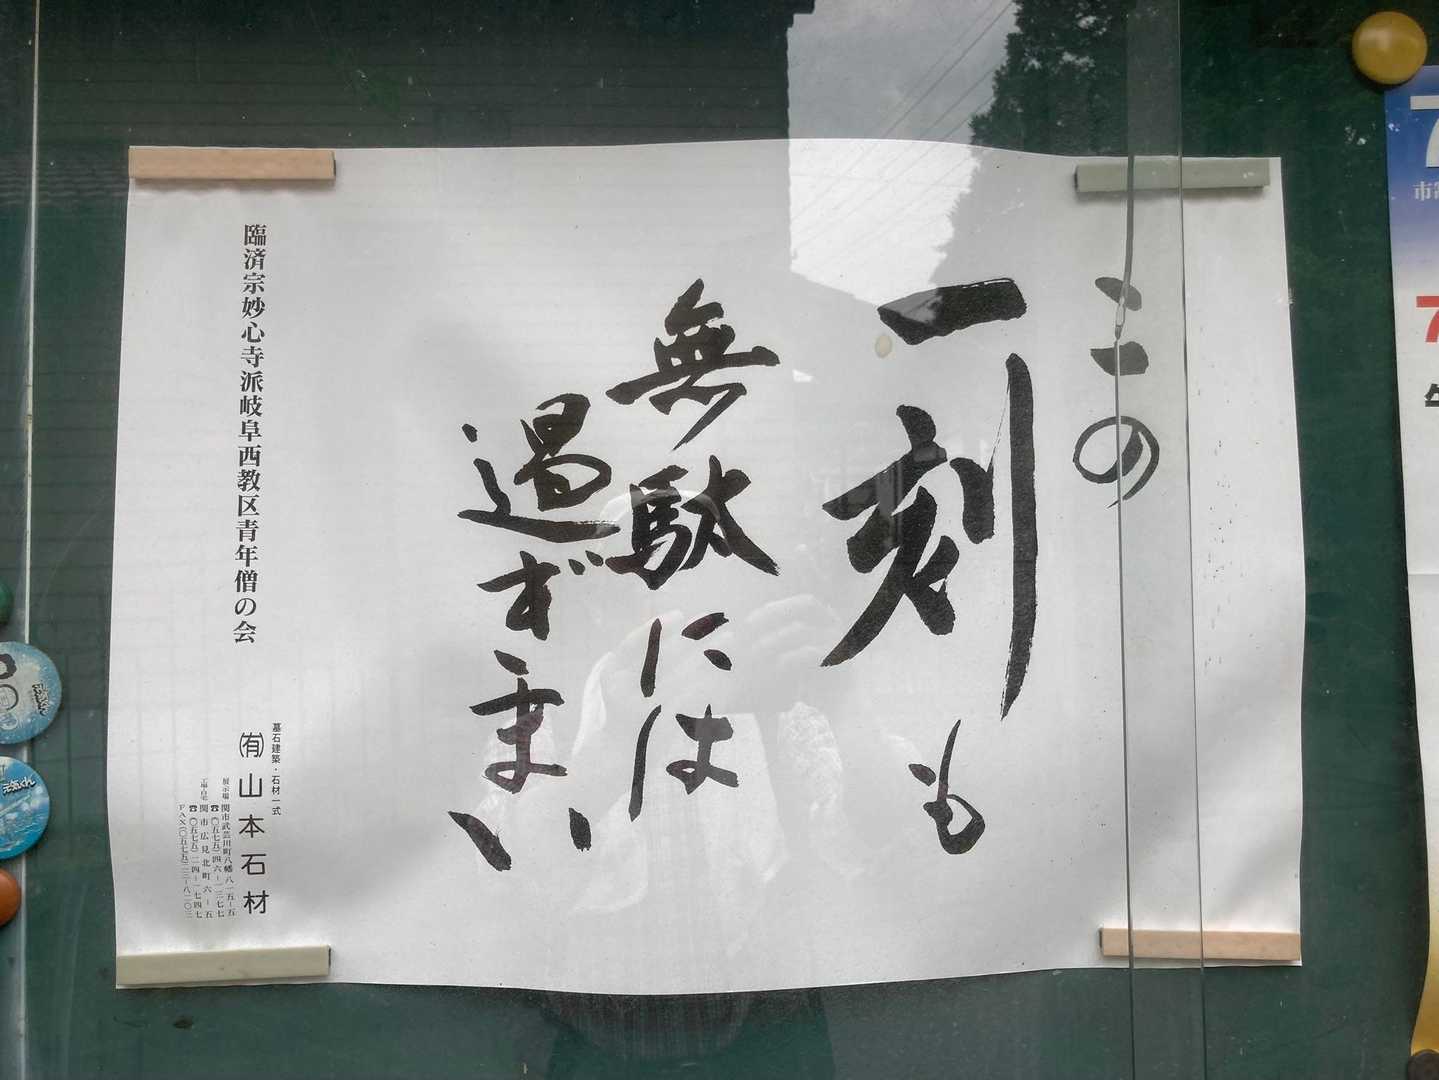 この
一刻も
無駄には
過ごすまい
臨済宗妙心寺派岐阜西教区青年僧の会
墓石建築・石材一式
㈲山本石材
展示場 関市武芸川町八幡八一五−五
☎〇五七五)四六−一三七七
工場・自宅 関市広見北町六−五
☎〇五七五)二四−一七四七
FAX(〇五七五)二三−八二〇三
市
7